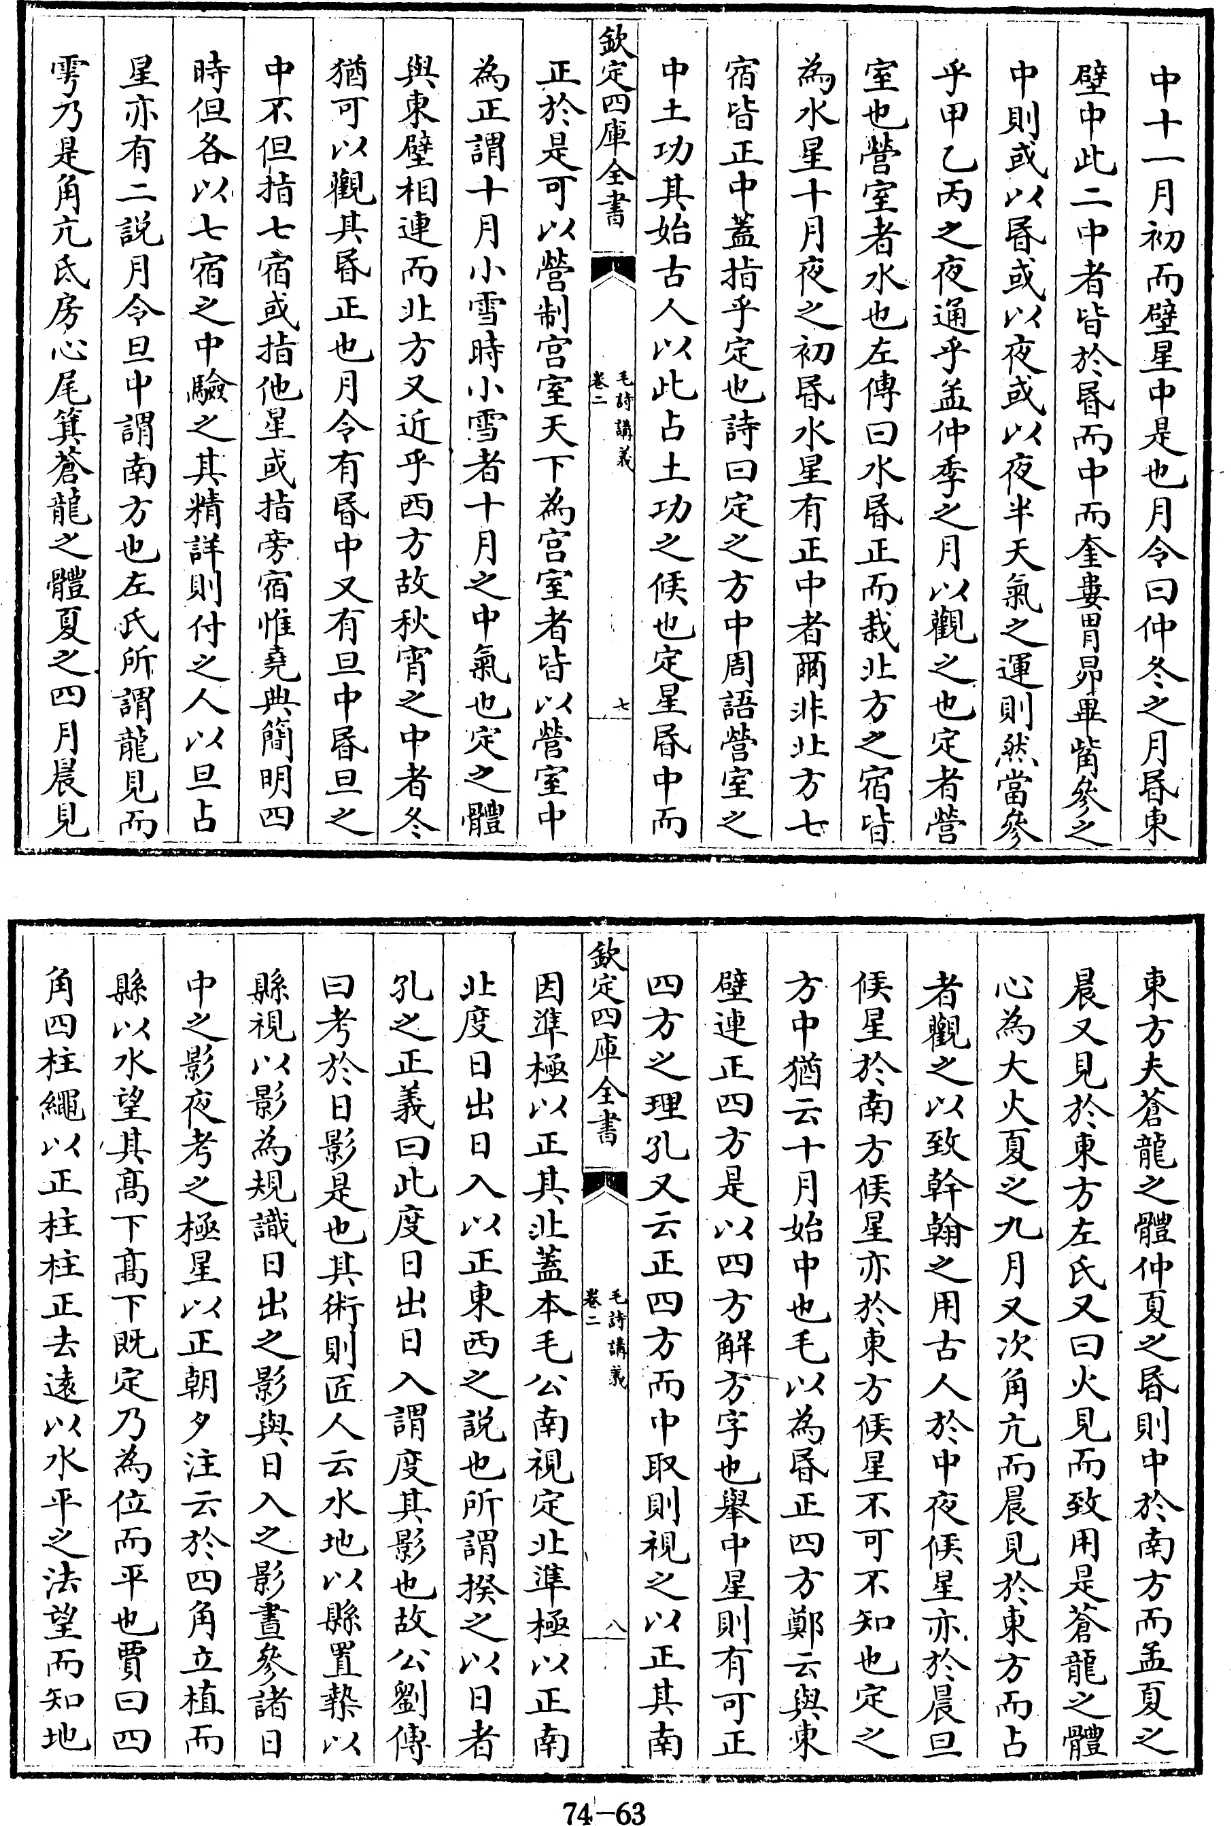 中十一月初而壁星中是也月令曰仲冬之月昬東
壁中此二中者皆於昬而中而奎婁胃昴畢觜參之
中則或以昬或以夜或以夜半天氣之運則然當參
乎甲乙丙之夜通乎孟仲季之月以觀之也定者營
室也營室者水也左傳曰水昬正而栽北方之宿皆
為水星十月夜之初昬水星有正中者爾非北方七
宿皆正中蓋指乎定也詩曰定之方中周語營室之
中土功其始古人以此占土功之候也定星昬中而
欽定四庫全書
毛詩講義
卷二
七
正於是可以營制宫室天下為宫室者皆以營室中
為正謂十月小雪時小雪者十月之中氣也定之體
與東壁相連而北方又近乎西方故秋宵之中者冬
猶可以觀其昬正也月令有昬中又有旦中昬旦之
中不但指七宿或指他星或指旁宿惟堯典簡明四
時但各以七宿之中驗之其精詳則付之人以旦占
星亦有二説月令旦中謂南方也左氏所謂龍見而
雩乃是角亢氐房心尾箕蒼龍之體夏之四月晨見
東方夫蒼龍之體仲夏之昬則中於南方而孟夏之
晨又見於東方左氏又曰火見而致用是蒼龍之體
心為大火夏之九月又次角亢而晨見於東方而占
者觀之以致幹翰之用古人於中夜候星亦於晨旦
候星於南方候星亦於東方候星不可不知也定之
方中猶云十月始中也毛以為昬正四方鄭云與東
壁連正四方是以四方解方字也舉中星則有可正
四方之理孔又云正四方而中取則視之以正其南
欽定四庫全書
毛詩講義
卷二
八
因準極以正其北蓋本毛公南視定北準極以正南
北度日出日入以正東西之説也所謂揆之以日者
孔之正義曰此度日出日入謂度其影也故公劉傳
曰考於日影是也其術則匠人云水地以縣置槷以
縣視以影為規識日出之影與日入之影晝參諸日
中之影夜考之極星以正朝夕注云於四角立植而
縣以水望其髙下髙下既定乃為位而平也賈曰四
角四柱繩以正柱柱正去逺以水平之法望而知地
74-63